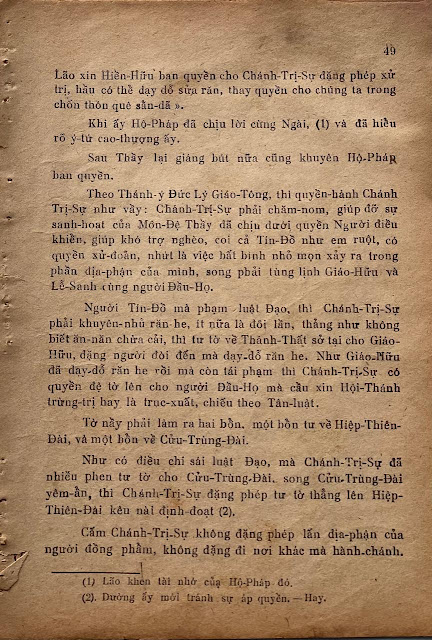 49
Lão xin Hiền-Hữu ban quyền cho Chánh-Trị-Sự đặng phép xử
trị, hầu có thể dạy dỗ sửa răn, thay quyền cho chúng ta trong
chốn thôn quê sằn-dã ».
Khi ấy Hộ-Pháp đã chịu lời cùng Ngài, (1) và đã hiểu
rõ ý-tứ cao-thượng ấy.
Sau Thầy lại giáng bút nữa cũng khuyên Hộ-Pháp
ban quyền.
Theo Thánh-ý Đức Lý Giáo-Tông, thì quyền-hành Chánh
Trị-Sự như vầy: Chánh-Trị-Sự phải chăm-nom, giúp đỡ sự
sanh-hoạt của Môn-Đệ Thầy đã chịu dưới quyền Người điều
khiển, giúp khó trợ nghèo, coi cả Tín-Đồ như em ruột, có
quyền xử-đoán, nhứt là việc bất bình nhỏ mọn xảy ra trong
phần địa-phận của mình, song phải tùng lịnh Giáo-Hữu và
Lễ-Sanh cùng người Đầu-Họ.
Người Tín-Đồ mà phạm luật Đạo, thì Chánh-Trị-Sự
phải khuyên-nhủ răn he, ít nữa là đôi lần, thảng như không
biết ăn-năn chừa cải, thì tư tờ về Thánh-Thất sở tại cho Giáo-
Hữu, đặng người đòi đến mà dạy-dỗ răn he. Như Giáo-Hữu
đã dạy-dỗ răn he rồi mà còn tái phạm thì Chánh-Trị-Sự có
quyền đệ tờ lên cho người Đầu-Họ mà cầu xin Hội-Thánh
trừng-trị hay là truc-xuất, chiếu theo Tân-luật.
Tờ nầy phải làm ra hai bồn. một bồn tư về Hiệp-Thiên-
Đài, và một bồn về Cửu-Trùng-Đài.
Như có điều chi sái luật Đạo, mà Chánh-Trị-Sự đã
nhiều phen tư tờ cho Cửu-Trùng-Đài. song Cửu-Trùng-Đài
yêm-ẩn, thì Chánh-Trị-Sự đặng phép tư tờ thẳng lên Hiệp-
Thiên-Đài kêu nài định-đoạt (2).
Cấm Chánh-Trị-Sự không đặng phép lấn địa-phận của
người đồng phẩm, không đặng đi nơi khác mà hành-chánh.
(1) Lão khen tài nhớ của Hộ-Pháp đó.
(2). Dường ấy mới tránh sự áp quyền. — Hay.